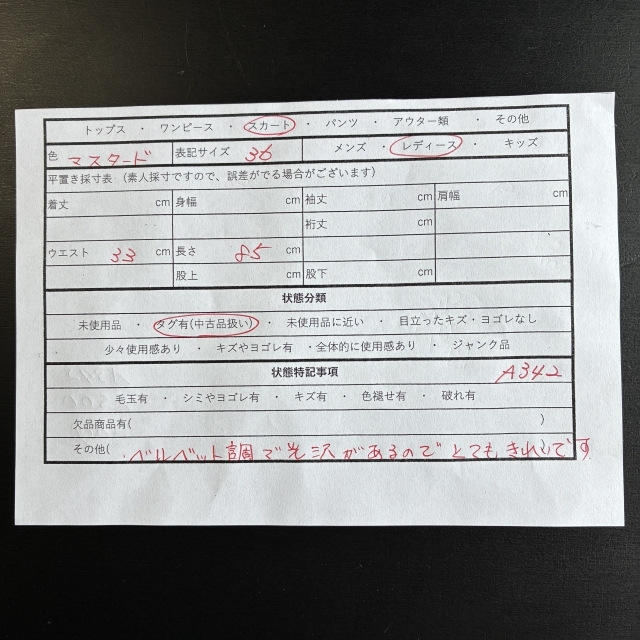 トップス ・ ワンピース ・ スカート ・ パンツ ・ アウター類 ・ その他
色 マスタード 表記サイズ 36 メンズ ・ レディース ・ キッズ
平置き採寸表 (素人採寸ですので、誤差がでる場合がございます)
着丈 cm 身幅 cm 袖丈 cm 肩幅 cm
裄丈 cm
ウエスト 33 cm 長さ 85 cm
股上 cm 股下 cm
状態分類
未使用品 ・ タグ有(中古品扱い) ・ 未使用品に近い ・ 目立ったキズ・ヨゴレなし
少々使用感あり ・ キズやヨゴレ有 ・全体的に使用感あり ・ ジャンク品
状態特記事項 A342
毛玉有 ・ シミやヨゴレ有 ・ キズ有 ・ 色褪せ有 ・ 破れ有
欠品商品有( )
その他( ベルベット調で光沢があるのでとてもきれいです